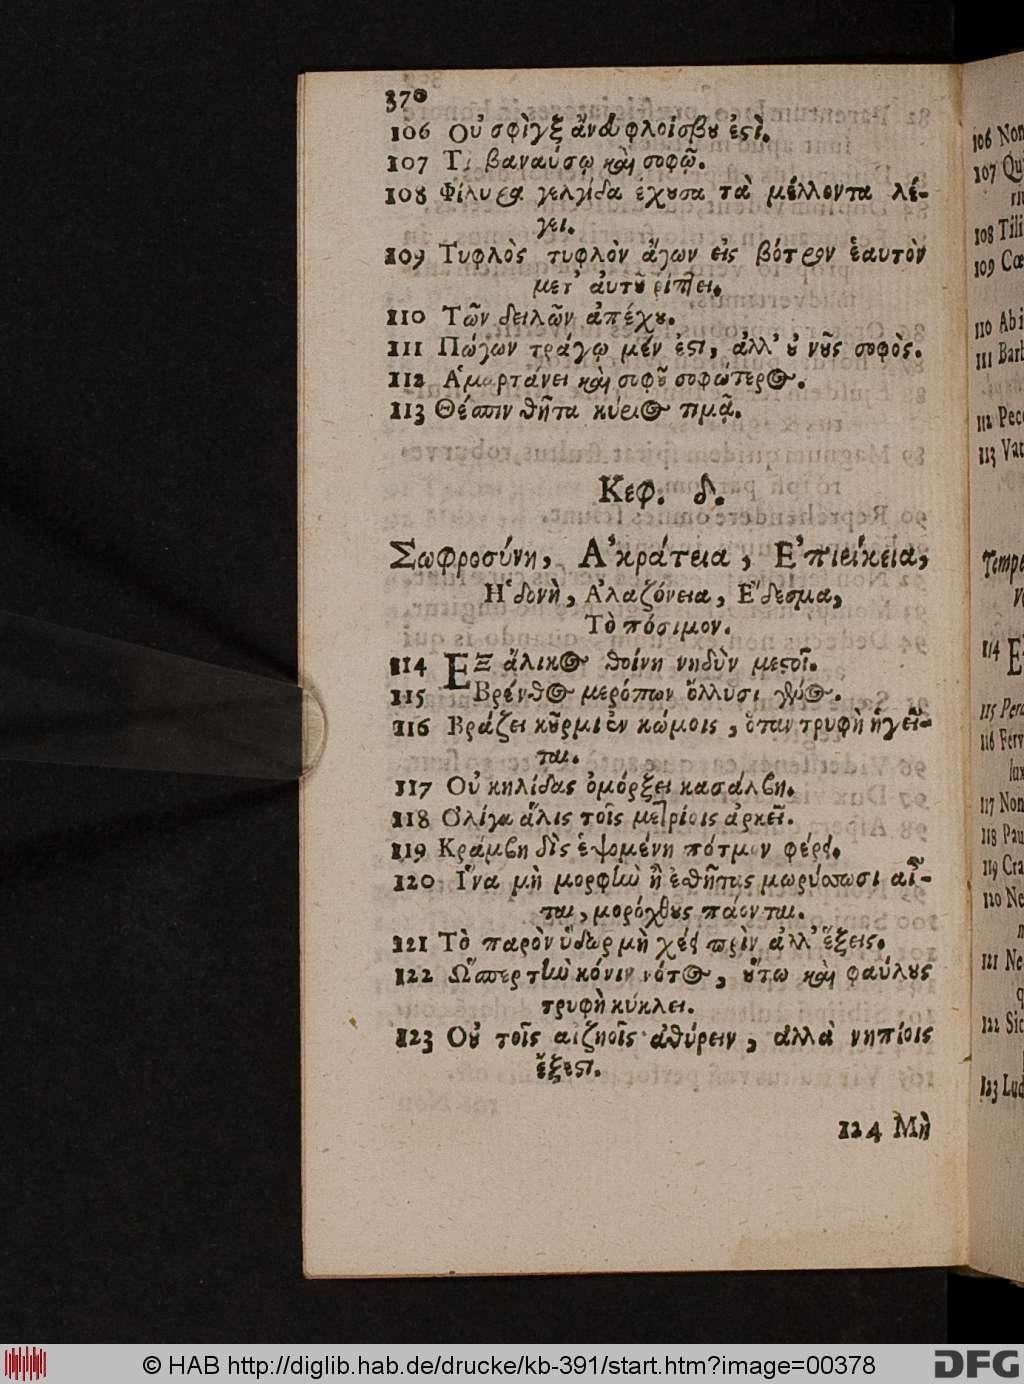 370
106 Οὐ σφὶγξ ἄνευ φλοίσβου ἐστὶ.
107 Τ βαναύσῳ καὶ σοφῷ.
108 Φίλυρα γελγίδα ἔχουσα τὰ μέλλοντα λέ-
γει.
109 Τυφλὸς τυφλὸν ἄγων εἰς βότρον ἑαυτὸν
μετ' αὐτοῦ ῥίπτει.
110 Τῶν δειλῶν ἀπέχου.
111 Πώγων τράγῳ μέν ἐστι, ἀλλ' οὐ νοῦς σοφὸς.
112 Ἁμαρτάνει καὶ σοφοῦ σοφώτερος.
113 Θέσπιν θῆτα κύριος τιμᾷ.
Κεφ. δ.
Σωφροσύνη, Ἀκράτεια, Ἐπιείκεια,
Ἡδονὴ, Ἀλαζόνεια, Ἔδεσμα,
Τὸ πόσιμον.
114 ΕΞ ἅλικος θοίνη νηδὺν μεστοῖ.
115 Βρένθος μερόπων ὄλλυσι
116 Βράζει κοῦρμι ἐν κώμοις, ὅταν τρυφὴ ἡγεῖ-
ται.
117 Οὐ κηλίδας ὀμόρξει κασάλβη.
118 Ολίγα ἅλις τοῖς μετρίοις ἀρκεῖ.
119 Κράμβη δὶς ἑψομένη πότμον φέρει.
120 Ἵνα μὴ μορφὴν ἢ ἐθῆτας μωρύσωσι αἷ-
ται, μορόχθους πάονται.
121 Τὸ παρὸν ὕδωρ μὴ χέῃς πρὶν ἀλλ' ἕξεις.
122 Ὥσπερ τὴν κόνιν νότος, οὕτω καὶ φαύλους
τρυφὴ κύκλει.
123 Οὐ τοῖς αἰζηοῖς ἀθύρειν, ἀλλὰ νηπίοις
ἔξεστι.
124 Μὴ
106 Non
107 Qu
108 Tili
109 Cœ
110 Abi
111 Barb
112 Pecc
113 Vat
Tempe
114 E
115 Perd
116 Ferv
lux
117 Non
118 Pau
119 Cra
120 Ne
121 Ne
122 Sic
123 Lud
© HAB http://diglib.hab.de/drucke/kb-391/start.htm?image=00378
DFG